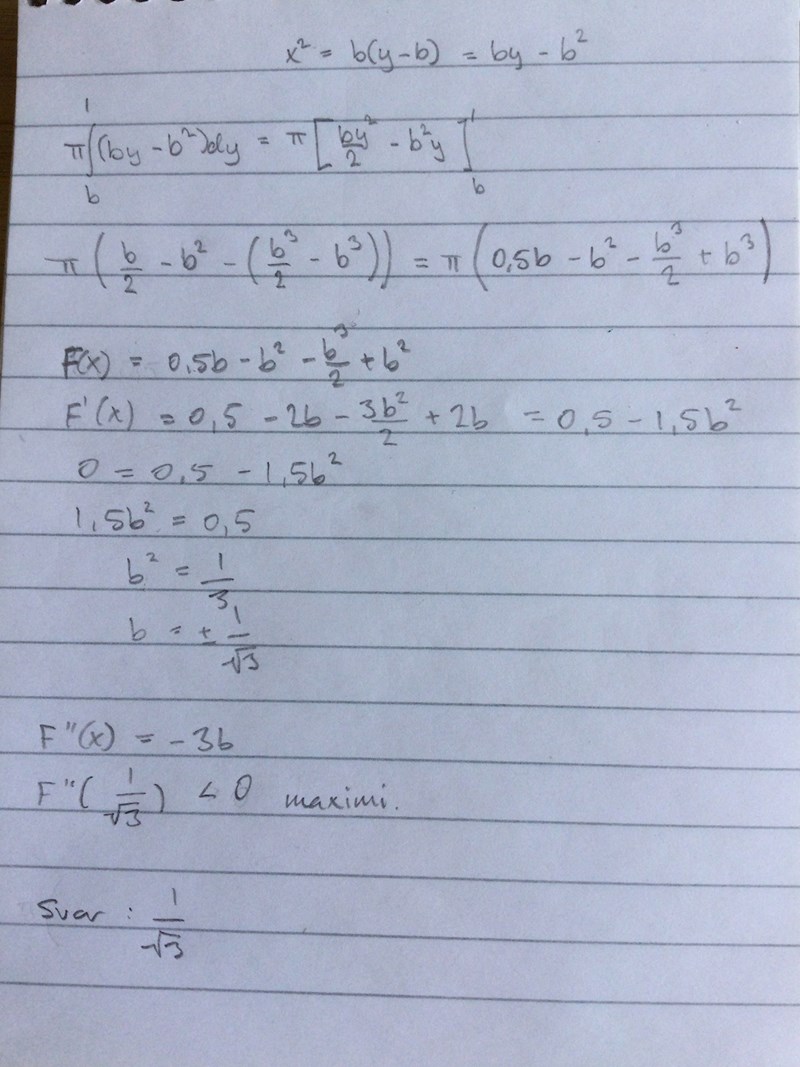 x² = b(y-b) = by - b²
π∫_b^1 (by - b²)dy = π[by²/2 - b²y]_b^1
π(b/2 - b² - (b³/2 - b³)) = π(0,5b - b² - b³/2 + b³)
F(x) = 0,5b - b² - b³/2 + b²
F'(x) = 0,5 - 2b - 3b²/2 + 2b = 0,5 - 1,5b²
0 = 0,5 - 1,5b²
1,5b² = 0,5
b² = 1/3
b = ± 1/√3
F''(x) = -3b
F''(1/√3) < 0 maximi.
Svar : 1/√3